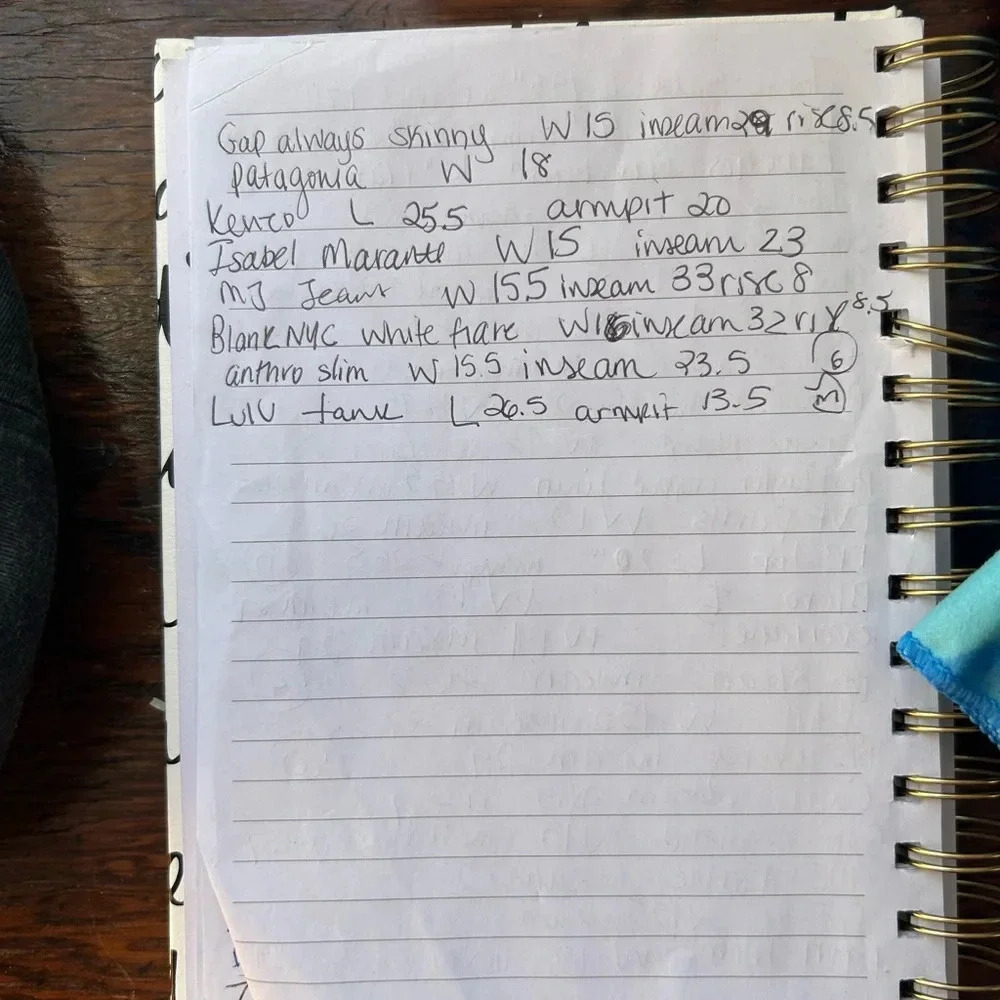 Gap always skinny W 15 inseam 29 rise 8.5
patagonia W 18
Kenzo L 25.5 armpit 20
Isabel Marante W 15 inseam 23
MJ Jeans W 15.5 inseam 33 rise 8
Blank NYC white flare W16 inseam 32 8.5
anthro slim W 15.5 inseam 23.5 6
Lulu tank L 26.5 armpit 13.5 M